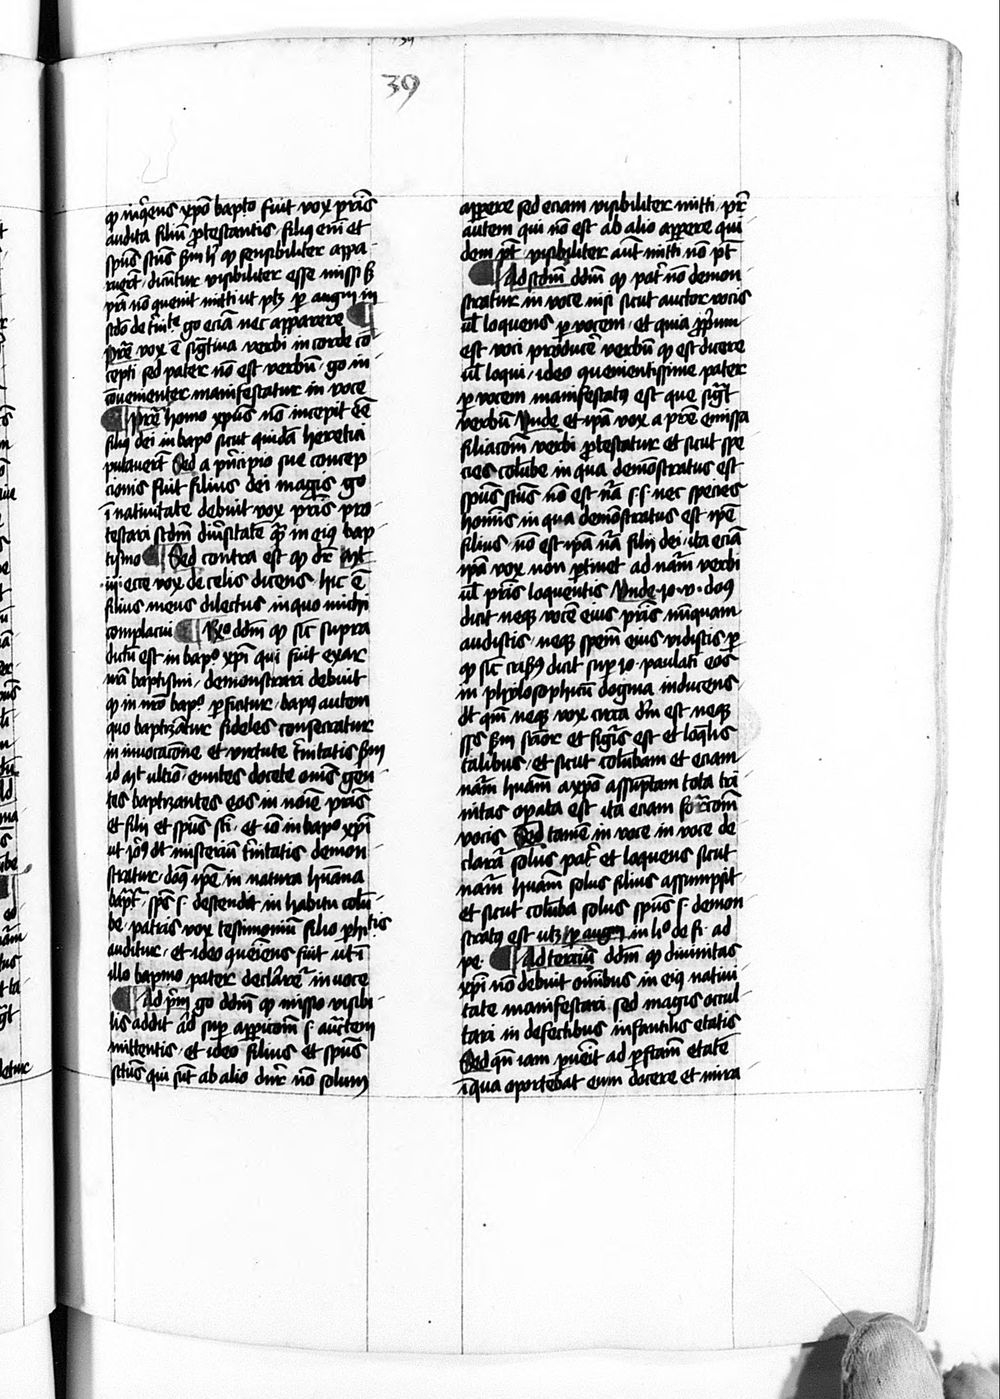 39
q inqͥens xpo bapto fuit vox pr̄is
audita filiū ꝓtestantis filiꝰ eni et
spūs stūs ẜm h̓ q sensibiliter appa
ruert̄ dicūtur visibiliter esse missi ẜꝫ
pr̄i nō ꝯuenit mitti ut ptꝫ ꝑ augm in
scdo de trīte go eciā nec apparere
Pr̄e vox ē sigtīua verbi in corde cō
cepti sed pater nō est verbū go in
ꝯuenienter manifestatur in voce
Pr̄e homo xpūs nō incepit eē
filiꝰ dei in bapo sicut quidā heretici
putauert̄ Sed a pͥncipio sue concep
cionis fuit filius dei magis go
ī natiuitate debuit vox pr̄is pro
testari scdm diuīsitate qͣ in eiꝰ bap
tismo Sed contra est q dr̄ mt
iij ecce vox de celis dicens hic ē
filius meus dilectus in quo michi
complacui Rͦ ddm q sīc supra
dictū est in bapo xpī qui fuit exar
baptismi demonstrari debuit
q in nr̄o bapo ꝑficitur bapꝰ autem
quo baptizātur fideles consecratur
in inuocacōne et virtute trīnitatis ẜm
id mt ultio euntes docete omīs gen
tes baptizantes eos in noīe pr̄is
et filij et spūs sti et iō in bapo xpī
ut Joꝰ dt misterium trīnitatis demon
stratur doꝰ ipe in natura huāna
bapt̄ spūs s̄ descendit in habitu colū
be patris vox testimoniū filio ꝑhitis
auditur et ideo ꝯueīens fuit ut ī
illo bapmo pater declarͣeͬ in voce
Ad pm go ddm q missio visibi
lis addit aͥd sup̄ appicom s̄ auctem
mittentis et ideo filius et spūs
sctūs qui sūt ab alio dnr̄ nō solum
appere sed eciam visibiliter mitti pr̄
autem qui nō est ab alio appere qui
dem pt̄ visibiliter aūt mitti nō pt̄
Ad scdm ddm q patͬ nō demon
stratur in voce nisi sicut auctor vocis
ul̄ loquens ꝑ vocem et quia ꝓpum
est voci producē verbū q est dicere
ul̄ loqui ideo ꝯuenientissime pater
ꝑ vocem manifestatꝰ est que sigt̄
verbū Unde et ipā vox a pr̄e emissa
filiacom verbi ꝓtestatur et sicut spe
cies colūbe in qua demōstratus est
spūs stūs nō est nā s̄s̄ nec species
homīs in qua demōstratus est ipē
filius nō est ipā nā filij dei ita eciā
ipā vox non ꝑtinet ad nām verbi
ul̄ pr̄is loquentis Unde jo v doꝰ
dicit neqꝫ vocē eius pr̄is nūquam
audistis neqꝫ spēm eius vidistis ꝑ
q sīc crisꝰ dicit sup̄ jo paulati eos
in phylosophicū dogma inducens
dt qm neqꝫ vox circa dm est neqꝫ
et figͬis est et loqlis
talibus et sicut colūbam et eciam
nām huām a xpo assūptam tota tri
nitas opata est ita eciam forͬcom
vocis Sed tamē in voce in voce de
clarā solus patͬ et loquens sicut
nām huām solus filius assumpsit
et sicut colūba solus spūs s̄ demon
stratꝰ est utꝫ ꝑ augm in lo de fi ad
pe Ad terciū ddm q diuinitas
xpī nō debuit omībus in eiꝰ natiui
tate manifestari sed magis occul
tari in defectibus infantilis etatis
Sed qn̄ iam ꝑuēit ad ꝑftam etatē
ī qua oportebat eum docere et mira